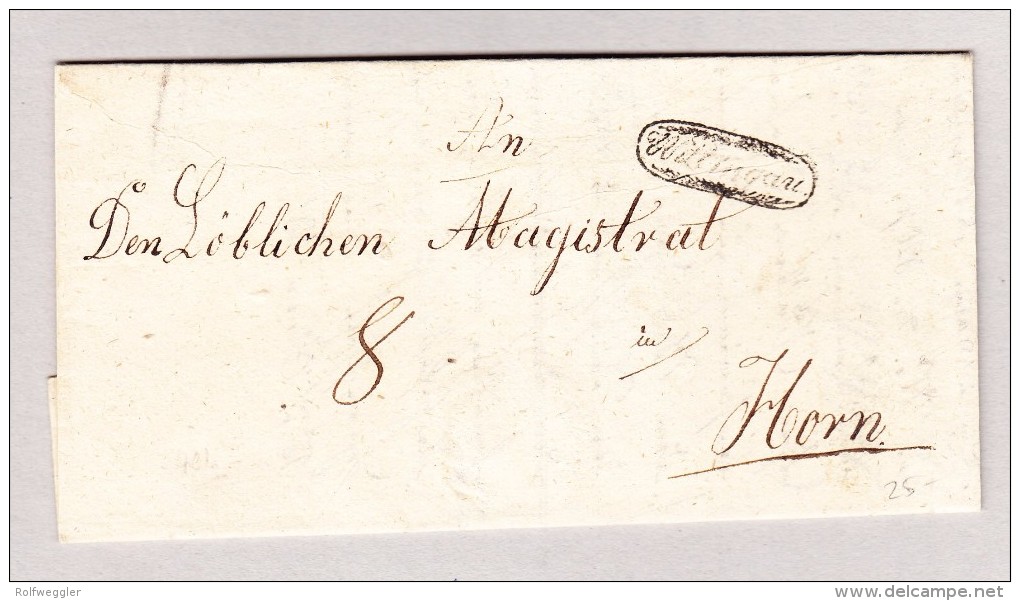 An
Den Löblichen Magistrat
8
in
Horn.
25-
Rolfweggler
www.delcampe.net